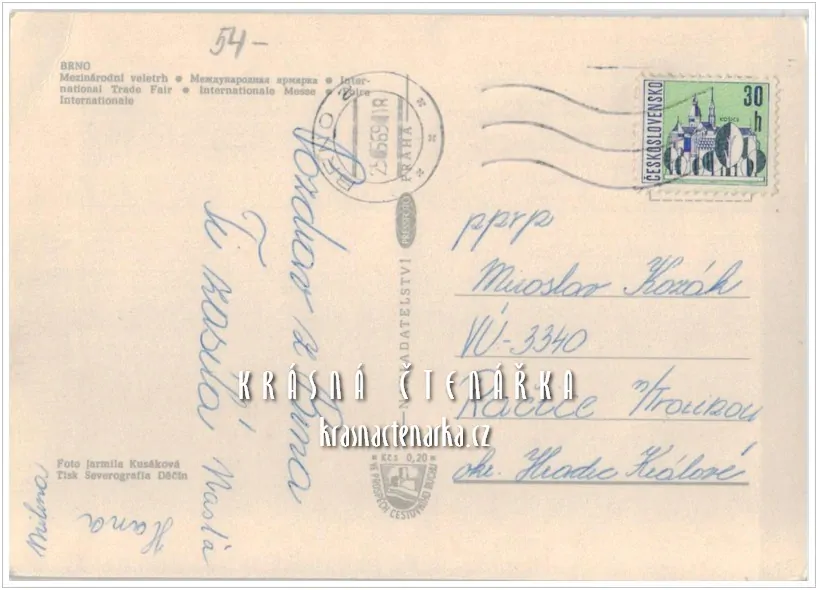 54-
BRNO
Mezinárodní veletrh ● Международная ярмарка ● Inter-
national Trade Fair ● Internationale Messe ● Foire
Internationale
BRNO 2
25.6.69-18
ČESKOSLOVENSKO
30
h
KOŠICE
Pozdrav z Brna
Ti zasílá
Vlasta
Hana
NAKLADATELSTVÍ PRESSFOTO PRAHA
pprp
Miroslav Kozák
VÚ-3340
Račice n/Trotinou
okr. Hradec Králové
KRÁSNÁ ČTENÁŘKA
krasnactenarka.cz
Kčs 0,20
VE PROSPĚCH CESTOVNÍHO RUCHU
Foto Jarmila Kusáková
Tisk Severografia Děčín